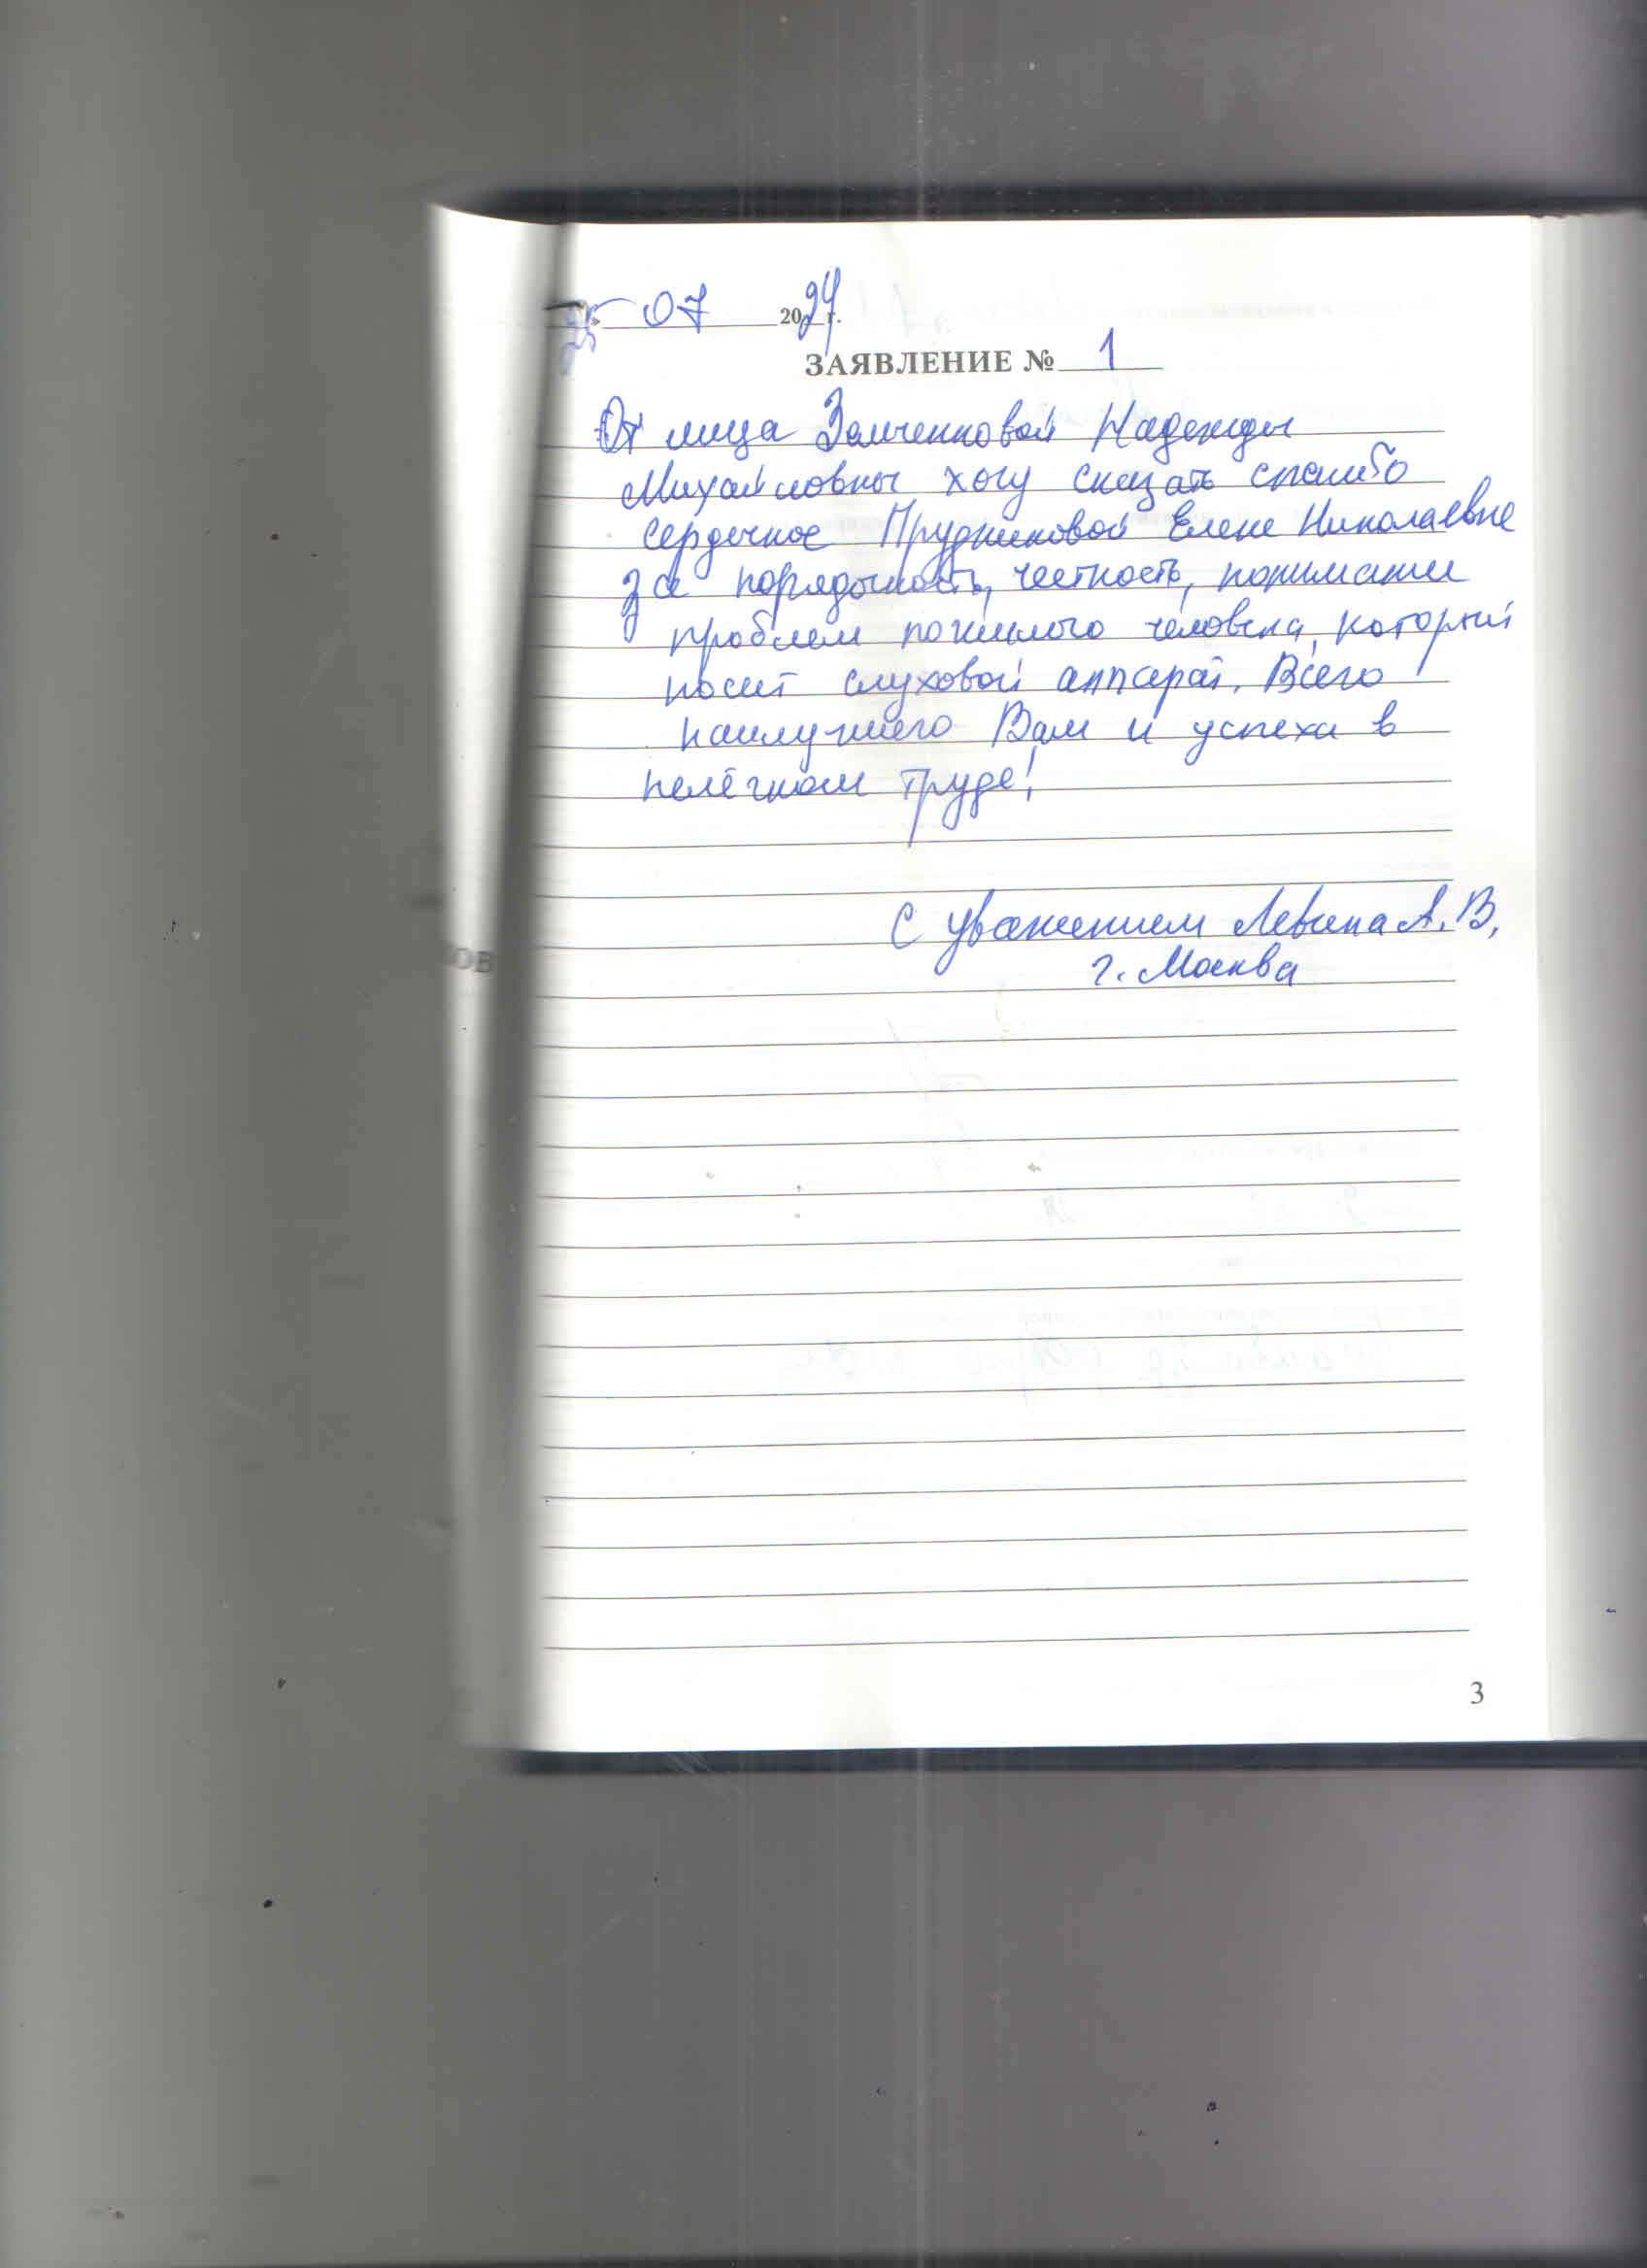 07 2024 г.
ЗАЯВЛЕНИЕ № 1
От лица Надежды
Михайловны хочу сказать спасибо
сердечное Прудниковой Елене Николаевне
за порядочность, честность, понимание
проблем пожилого человека, который
носит слуховой аппарат. Всего
наилучшего Вам и успеха в
нелёгком труде!
С уважением Левина А.В.
г. Москва
ОВ
3